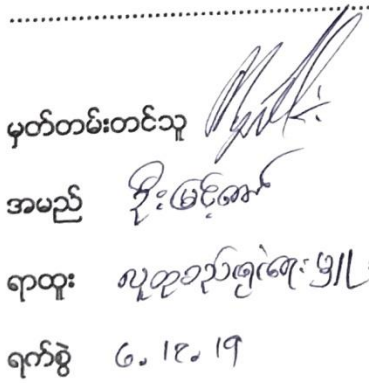 မှတ်တမ်းတင်သူ
အမည် ဦးမြင့်ဇော်
ရာထူး လူထုစည်းရုံးရေးမှူး
ရက်စွဲ ၆.၁၂.၁၉